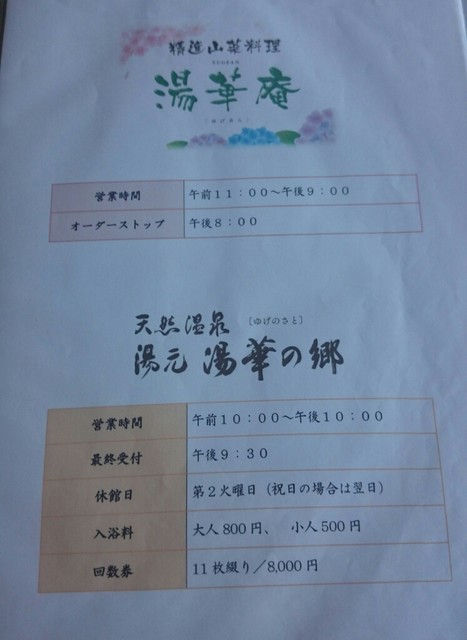 精進山菜料理
湯華庵
〔ゆげあん〕
営業時間 午前11：00〜午後9：00
オーダーストップ 午後8：00
天然温泉 〔ゆげのさと〕
湯元 湯華の郷
営業時間 午前10：00〜午後10：00
最終受付 午後9：30
休館日 第2火曜日（祝日の場合は翌日）
入浴料 大人800円、 小人500円
回数券 11枚綴り／8,000円